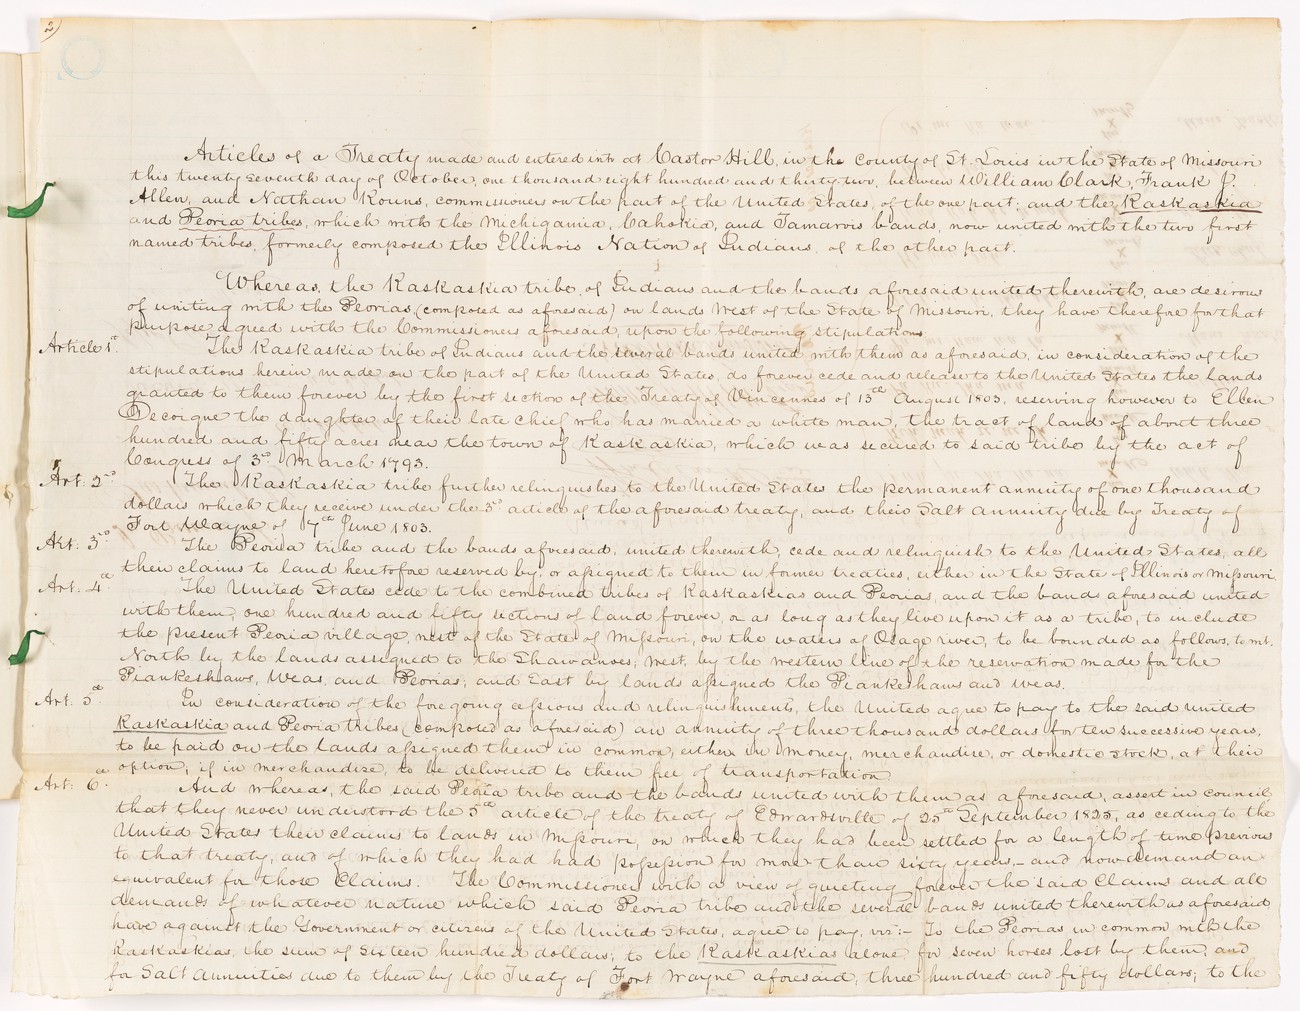 2)
Articles of a Treaty made and entered into at Castor Hill, in the County of St. Louis in the State of Missouri
this twenty seventh day of October, one thousand eight hundred and thirty two, between William Clark, Frank J.
Allen, and Nathan Kouns, commissioners on the part of the United States, of the one part; and the Kaskaskia
and Peoria tribes, which with the Michigamia, Cahokia, and Tamarois bands, now united with the two first
named tribes, formerly composed the Illinois Nation of Indians, of the other part.
Whereas, the Kaskaskia tribe, of Indians and the bands aforesaid united therewith, are desirous
of uniting with the Peorias, (composed as aforesaid) on lands West of the State of Missouri, they have therefore for that
purpose agreed with the Commissioners aforesaid, upon the following stipulations
Article 1st. The Kaskaskia tribe of Indians and the several bands united with them as aforesaid, in consideration of the
stipulations herein made on the part of the United States, do forever cede and release to the United States the lands
granted to them forever by the first section of the Treaty of Vincennes of 13th August 1803, reserving however to Ellen
Decoigne the daughter of their late Chief who has married a white man, the tract of land of about three
hundred and fifty acres near the town of Kaskaskia, which was secured to said tribe by the act of
Congress of 3rd March 1793.
Art: 2nd The Kaskaskia tribe further relinquishes to the United States the permanent annuity of one thousand
dollars which they receive under the 3rd article of the aforesaid treaty, and their Salt annuity due by Treaty of
Fort Wayne of 7th June 1803.
Art: 3rd The Peoria tribe and the bands aforesaid, united therewith, cede and relinquish to the United States, all
their claims to land heretofore reserved by, or assigned to them in former treaties, either in the State of Illinois or Missouri.
Art: 4th The United States cede to the combined tribes of Kaskaskias and Peorias, and the bands aforesaid united
with them, one hundred and fifty sections of land forever, or as long as they live upon it as a tribe, to include
the present Peoria village, west of the State of Missouri, on the waters of Osage river, to be bounded as follows, to wit.
North by the lands assigned to the Shawanoes; West, by the western line of the reservation made for the
Piankeshaws, Weas, and Peorias; and East by lands assigned the Piankeshaws and Weas.
Art: 5th In consideration of the foregoing cessions and relinquishments, the United agree to pay to the said united
Kaskaskia and Peoria tribes (composed as aforesaid) an annuity of three thousand dollars for ten successive years,
to be paid on the lands assigned them in common, either in money, merchandize, or domestic stock, at their
option; if in merchandize, to be delivered to them free of transportation
Art: 6th. And whereas, the said Peoria tribe and the bands united with them as aforesaid, assert in council
that they never understood the 5th article of the treaty of Edwardsville of 25th September 1825, as ceding to the
United States their claims to lands in Missouri, on which they had been settled for a length of time previous
to that treaty, and of which they had had possession for more than sixty years,—and now demand an
equivalent for those Claims. The Commissioners with a view of quieting forever the said Claims and all
demands of whatever nature which said Peoria tribe and the several bands united therewith as aforesaid
have against the Government or citizens of the United States, agree to pay, viz:— To the Peorias in common with the
Kaskaskias, the sum of sixteen hundred dollars; to the Kaskaskias alone for seven horses lost by them, and
for Salt annuities due to them by the Treaty of Fort Wayne aforesaid, three hundred and fifty dollars; to the